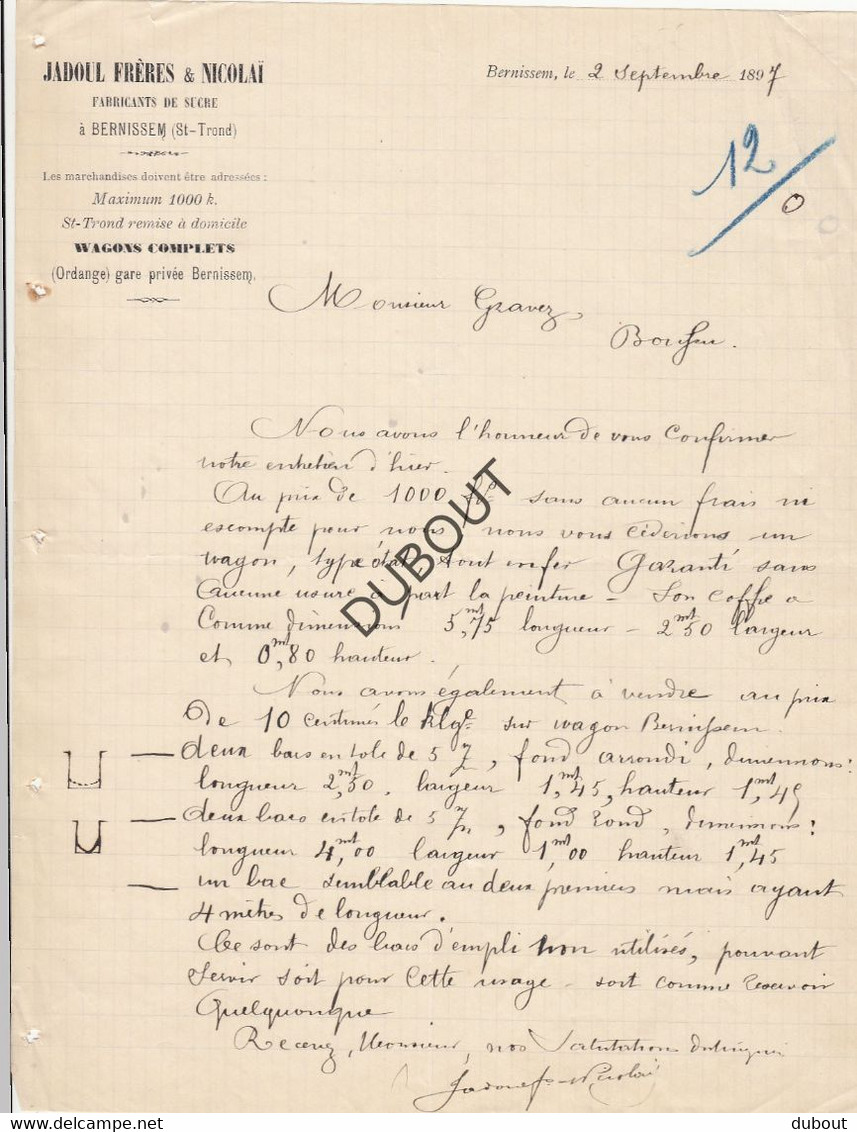 JADOUL FRÈRES & NICOLAÏ
FABRICANTS DE SUCRE
à BERNISSEM (St-Trond)
Les marchandises doivent être adressées :
Maximum 1000 k.
St-Trond remise à domicile
WAGONS COMPLETS
(Ordange) gare privée Bernissem.
Bernissem, le 2 Septembre 1897
12/0
Monsieur Gravez,
Nous avons l'honneur de vous confirmer
notre entretien d'hier.
Au prix de 1000 sans aucun frais ni
escompte pour nous nous vous céderions un
wagon, type état, tout en fer Garanti sans
aucune usure à part la peinture – Son coffre a
comme dimensions 5,mt75 longueur – 2mt50 largeur
et 0,mt80 hauteur.
Nous avons également à vendre au prix
de 10 centimes le klge sur wagon Bernissem.
— deux bacs en tole de 5 m/m, fond arrondi, dimensions :
longueur 2,mt50, largeur 1,mt45, hauteur 1,mt45
— deux bacs en tole de 5 m/m, fond rond, dimensions :
longueur 4,mt00 largeur 1,mt00 hauteur 1,mt45
— un bac semblable au deux premiers mais ayant
4 mètres de longueur.
Ce sont des bacs d'empli non utilisés, pouvant
servir soit pour cette usage – soit comme reservoir
quelquonque
Recevez, Monsieur, nos salutations distinguées
Jadoul fs Nicolaï
DUBOUT
delcampe.net
dubout